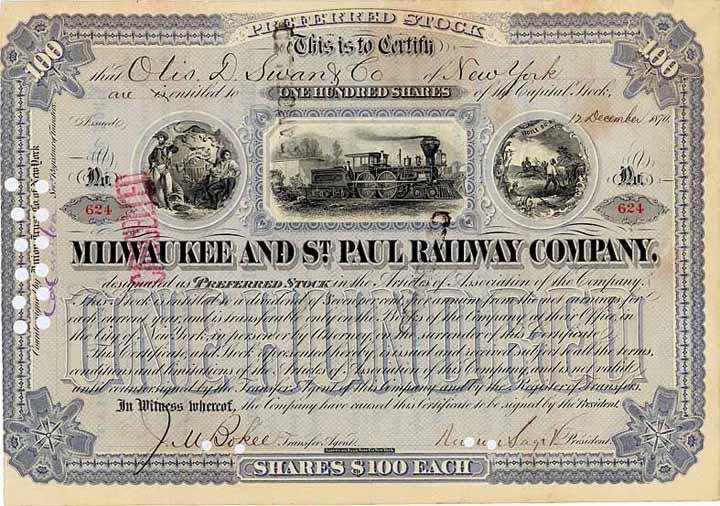 PREFERRED STOCK
100 This is to Certify 100
that Otis. D. Swan & Co of New York
are entitled to ONE HUNDRED SHARES of the Capital Stock,
Issued 12 December 1870.
No. No.
624 624
CANCELLED
MILWAUKEE AND ST. PAUL RAILWAY COMPANY.
designated as PREFERRED STOCK in the Articles of Association of the Company.
This Stock is entitled to a dividend of Seven per cent per annum from the net earnings for
each current year, and is transferable only on the Books of the Company at their Office in
the City of New York, in person or by Attorney on the surrender of this Certificate.
This Certificate of Stock is presented hereby issued and received subject to all the terms,
conditions and limitations of the Articles of Association of this Company, and is not valid
until countersigned by the Transfer Agent of this Company and by the Register of Transfers.
ONE HUNDRED
In Witness whereof, the Company have caused this Certificate to be signed by the President.
J. M. Bokee Transfer Agent. Russell Sage V. President.
American Bank Note Co. New York
100 SHARES $100 EACH 100
Countersigned by Union Trust Co. of New York